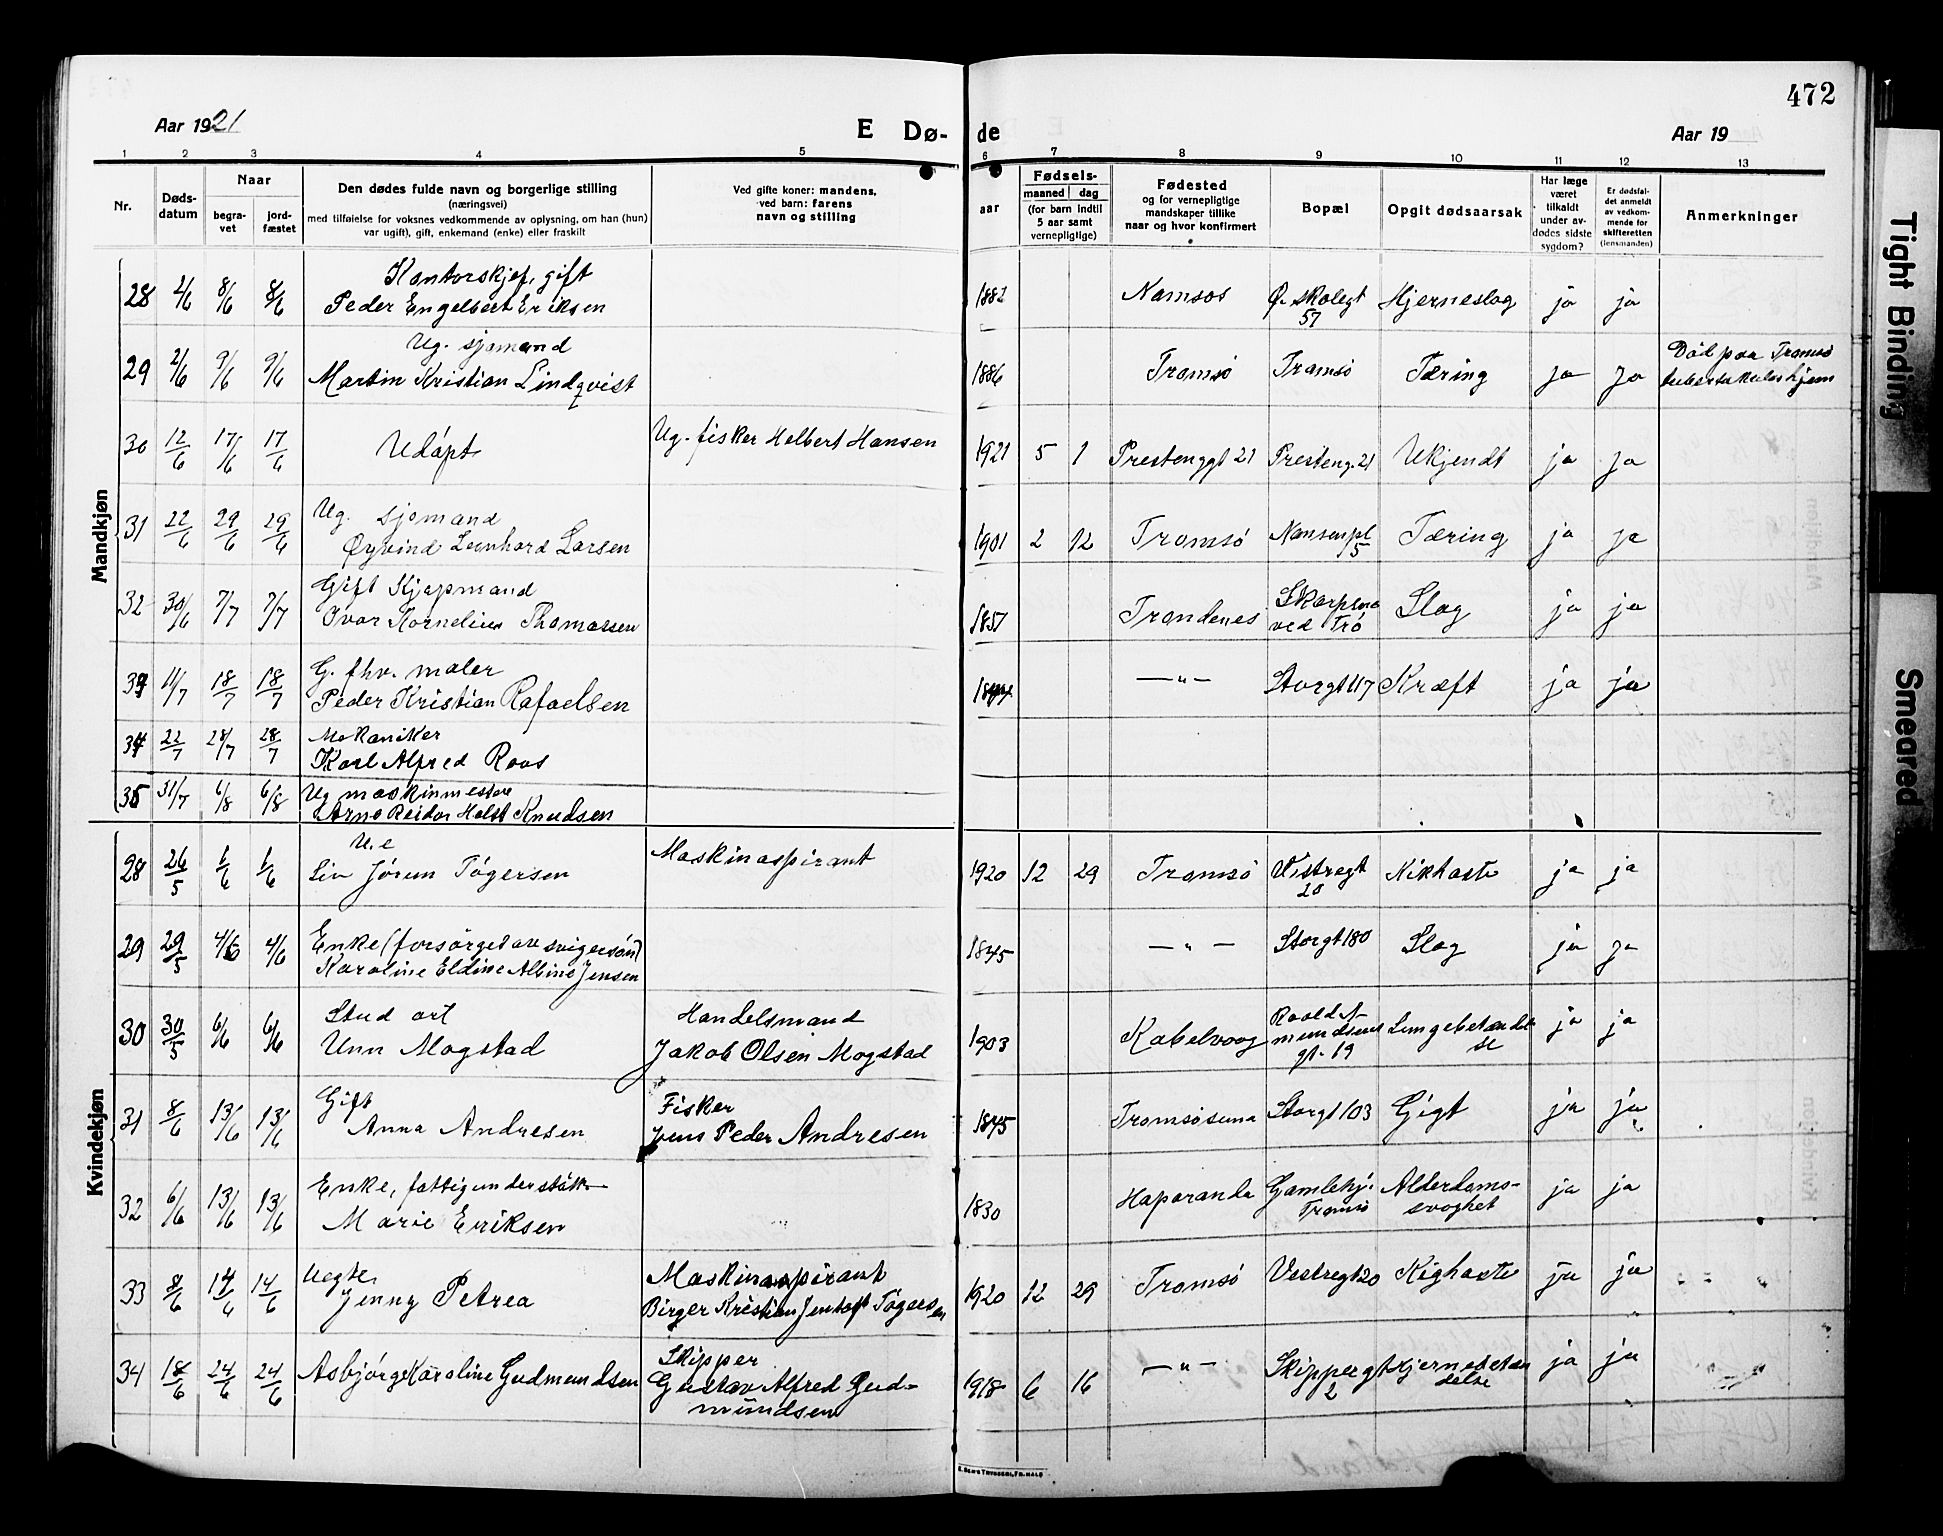 472
Aar 1921
E Dø-
de
Aar 19
1 2 3 4 5 6 7 8 9 10 11 12 13
Nr.
Døds-
datum
Naar
begra-
vet
jord-
fæstet
Den dødes fulde navn og borgerlige stilling
(næringsvei)
med tilføielse for voksnes vedkommende av oplysning, om han (hun)
var ugift), gift, enkemand (enke) eller fraskilt
Ved gifte koner: mandens,
ved barn: farens
navn og stilling
aar
Fødsels-
maaned dag
(for barn indtil
5 aar samt
vernepligtige)
Fødested
og for vernepligtige
mandskaper tillike
naar og hvor konfirmert
Bopæl
Opgit dødsaarsak
Har læge
været
tilkaldt
under av-
dødes sidste
sygdom?
Er dødsfal-
det anmeldt
av vedkom-
mende for
skifteretten
(lensmanden)
Anmerkninger
Mandkjøn
28 2/6 8/6 8/6 Kontorskjef, gift
Peder Engelbert Eriksen
1882 Namsos Ø. skolegt
57
Hjerneslag ja ja
29 2/6 9/6 9/6 Ug. sjømand
Martin Kristian Lindqvist
1886 Tromsø Tromsø Tæring ja ja
Død paa Tromsø
tuberkuloshjem
30 12/6 17/6 17/6 Udøpt Ug. fisker Helbert Hansen
1921 5 1 Prestenggt 21 Presteng. 21 Ukjendt ja ja
31 22/6 29/6 29/6 Ug. sjømand
Øyvind Leonhard Larsen
1901 2 12 Tromsø Nansenpl
5
Tæring ja ja
32 30/6 7/7 7/7 Gift Kjøpmand
Ivar Kornelius Thomassen
1857 Trondenes
ved Trø
Slag ja ja
33 11/7 18/7 18/7 G. fhv. maler
Peder Kristian Rafaelsen
—"— Storgt 117 Kræft ja ja
34 22/7 28/7 28/7 Mekaniker
Karl Alfred Roos
35 31/7 6/8 6/8 Ug maskinmester
Arne Reidar Holst Knudsen
Kvindekjøn
28 26/5 1/6 1/6 U.e
Liv Jørun Tøgersen
Maskinaspirant
1920 12 29 Tromsø Vestregt
20
Kikhoste ja ja
29 29/5 4/6 4/6 Enke (forsørget av svigersøn)
Karoline Eldine Albine Jensen
1845 —"— Storgt 180 Slag ja ja
30 30/5 6/6 6/6 Stud art
Unn Mogstad
Handelsmand
Jakob Olsen Mogstad
1903 Kabelvaag Roald A-
mundsens
gt. 19
Lungebetændel
se
ja ja
31 8/6 13/6 13/6 Gift
Anna Andresen
Fisker
Jens Peder Andresen
1845 Tromsøsund Storgt 103 Gigt ja ja
32 6/6 13/6 13/6 Enke, fattigunderstøtt.
Marie Eriksen
1830 Haparanda Gamlehj.
Tromsø
Alderdoms-
svaghet
ja ja
33 8/6 14/6 14/6 Uegte
Jenny Petrea
Maskinaspirant
Birger Kristian Jentoft Tøgersen
1920 12 29 Tromsø Vestregt 20 Kighoste ja ja
34 18/6 24/6 24/6 Asbjørg Karoline Gudmundsen
Skipper
Gustav Alfred Gud-
mundsen
1918 6 16 —"— Skippergt
2
Hjernebetæn
delse
ja ja
E. SEM'S TRYKKERI, FR.HALD
Tight Binding
Smeared